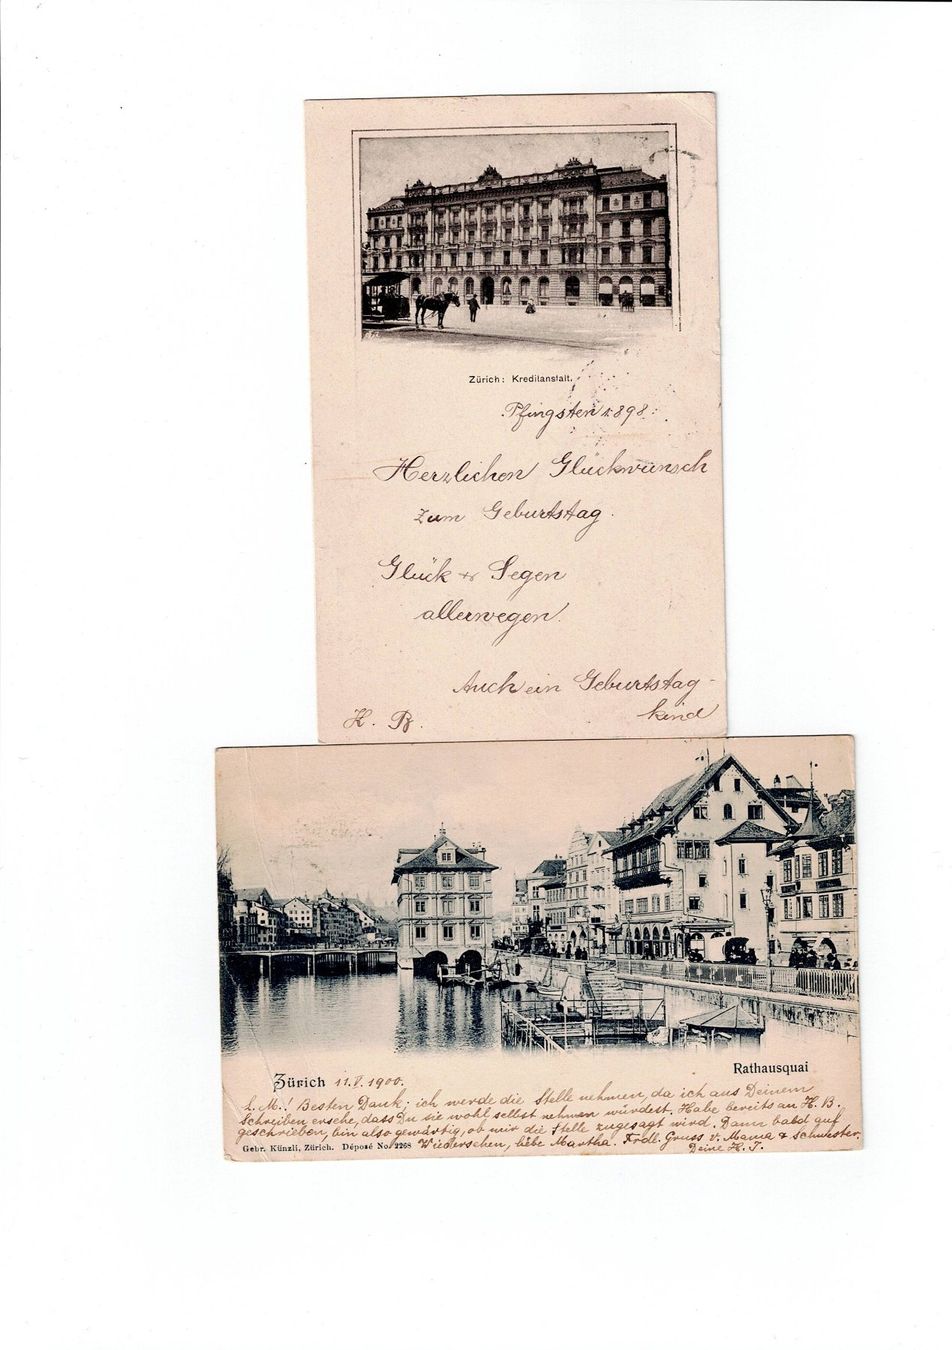 Zürich: Kreditanstalt.
Pfingsten 1898.
Herzlichen Glückwunsch
zum Geburtstag.
Glück & Segen
allerwegen.
Auch ein Geburtstag-
kind
H. B.
Zürich 11.V.1900.
Rathausquai
L. M.! Besten Dank; ich werde die Stelle nehmen, da ich aus Deinem
Schreiben ersehe, dass Du sie wohl selbst nehmen würdest. Habe bereits an H. B.
geschrieben, bin also gewärtig, ob mir die Stelle zugesagt wird. Dann bald auf
Gebr. Künzli, Zürich. Déposé No. 2268 Wiedersehen, liebe Martha. Frdl. Gruss v. Mama & Schwester.
Deine H. F.